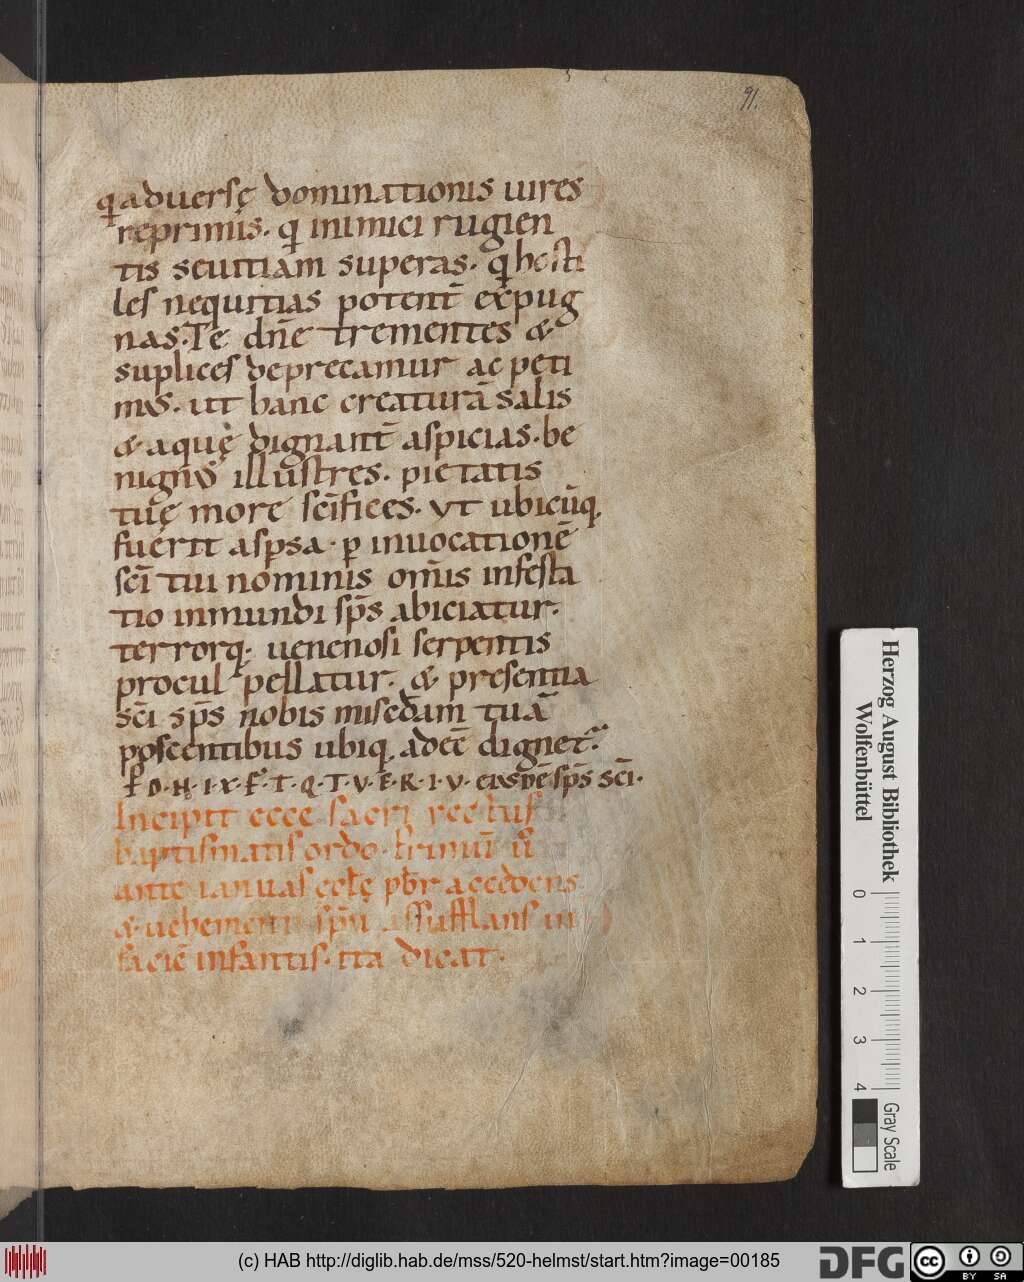 91.
q adversę dominationis uires
reprimis. q inimici rugien
tis seuitiam superas. q hosti
les nequitias potent̄ expug
nas. Te dn̄e trementes &
suplices deprecamur ac peti
mus. ut hanc creaturā salis
& aquę dignant̄ aspicias. be
nignus illustres. pietatis
tuę more sc̄ifices. ut ubicūq.
fuerit aspsa. p inuocationē
sc̄i tui nominis om̄is infesta
tio inmundi sp̄s abiciatur.
terrorq. uenenosi serpentis
procul pellatur. & presentia
sc̄i sp̄s nobis misedam tuā
poscentibus ubiq. adeē dignet.
P D. H. I. X. F. T. Q. T. V. E. R. I. V. eiusdē sp̄s sc̄i.
Incipit ecce sacri rectus
baptismatis ordo.
ante ianuas ęcl̄ę pbr̄ accedens
& uehementi sp̄u assufflans in
faciē infantis. ita dicat.
Herzog August Bibliothek
Wolfenbüttel
0 1 2 3 4
Gray Scale
(c) HAB http://diglib.hab.de/mss/520-helmst/start.htm?image=00185
DFG
cc BY SA